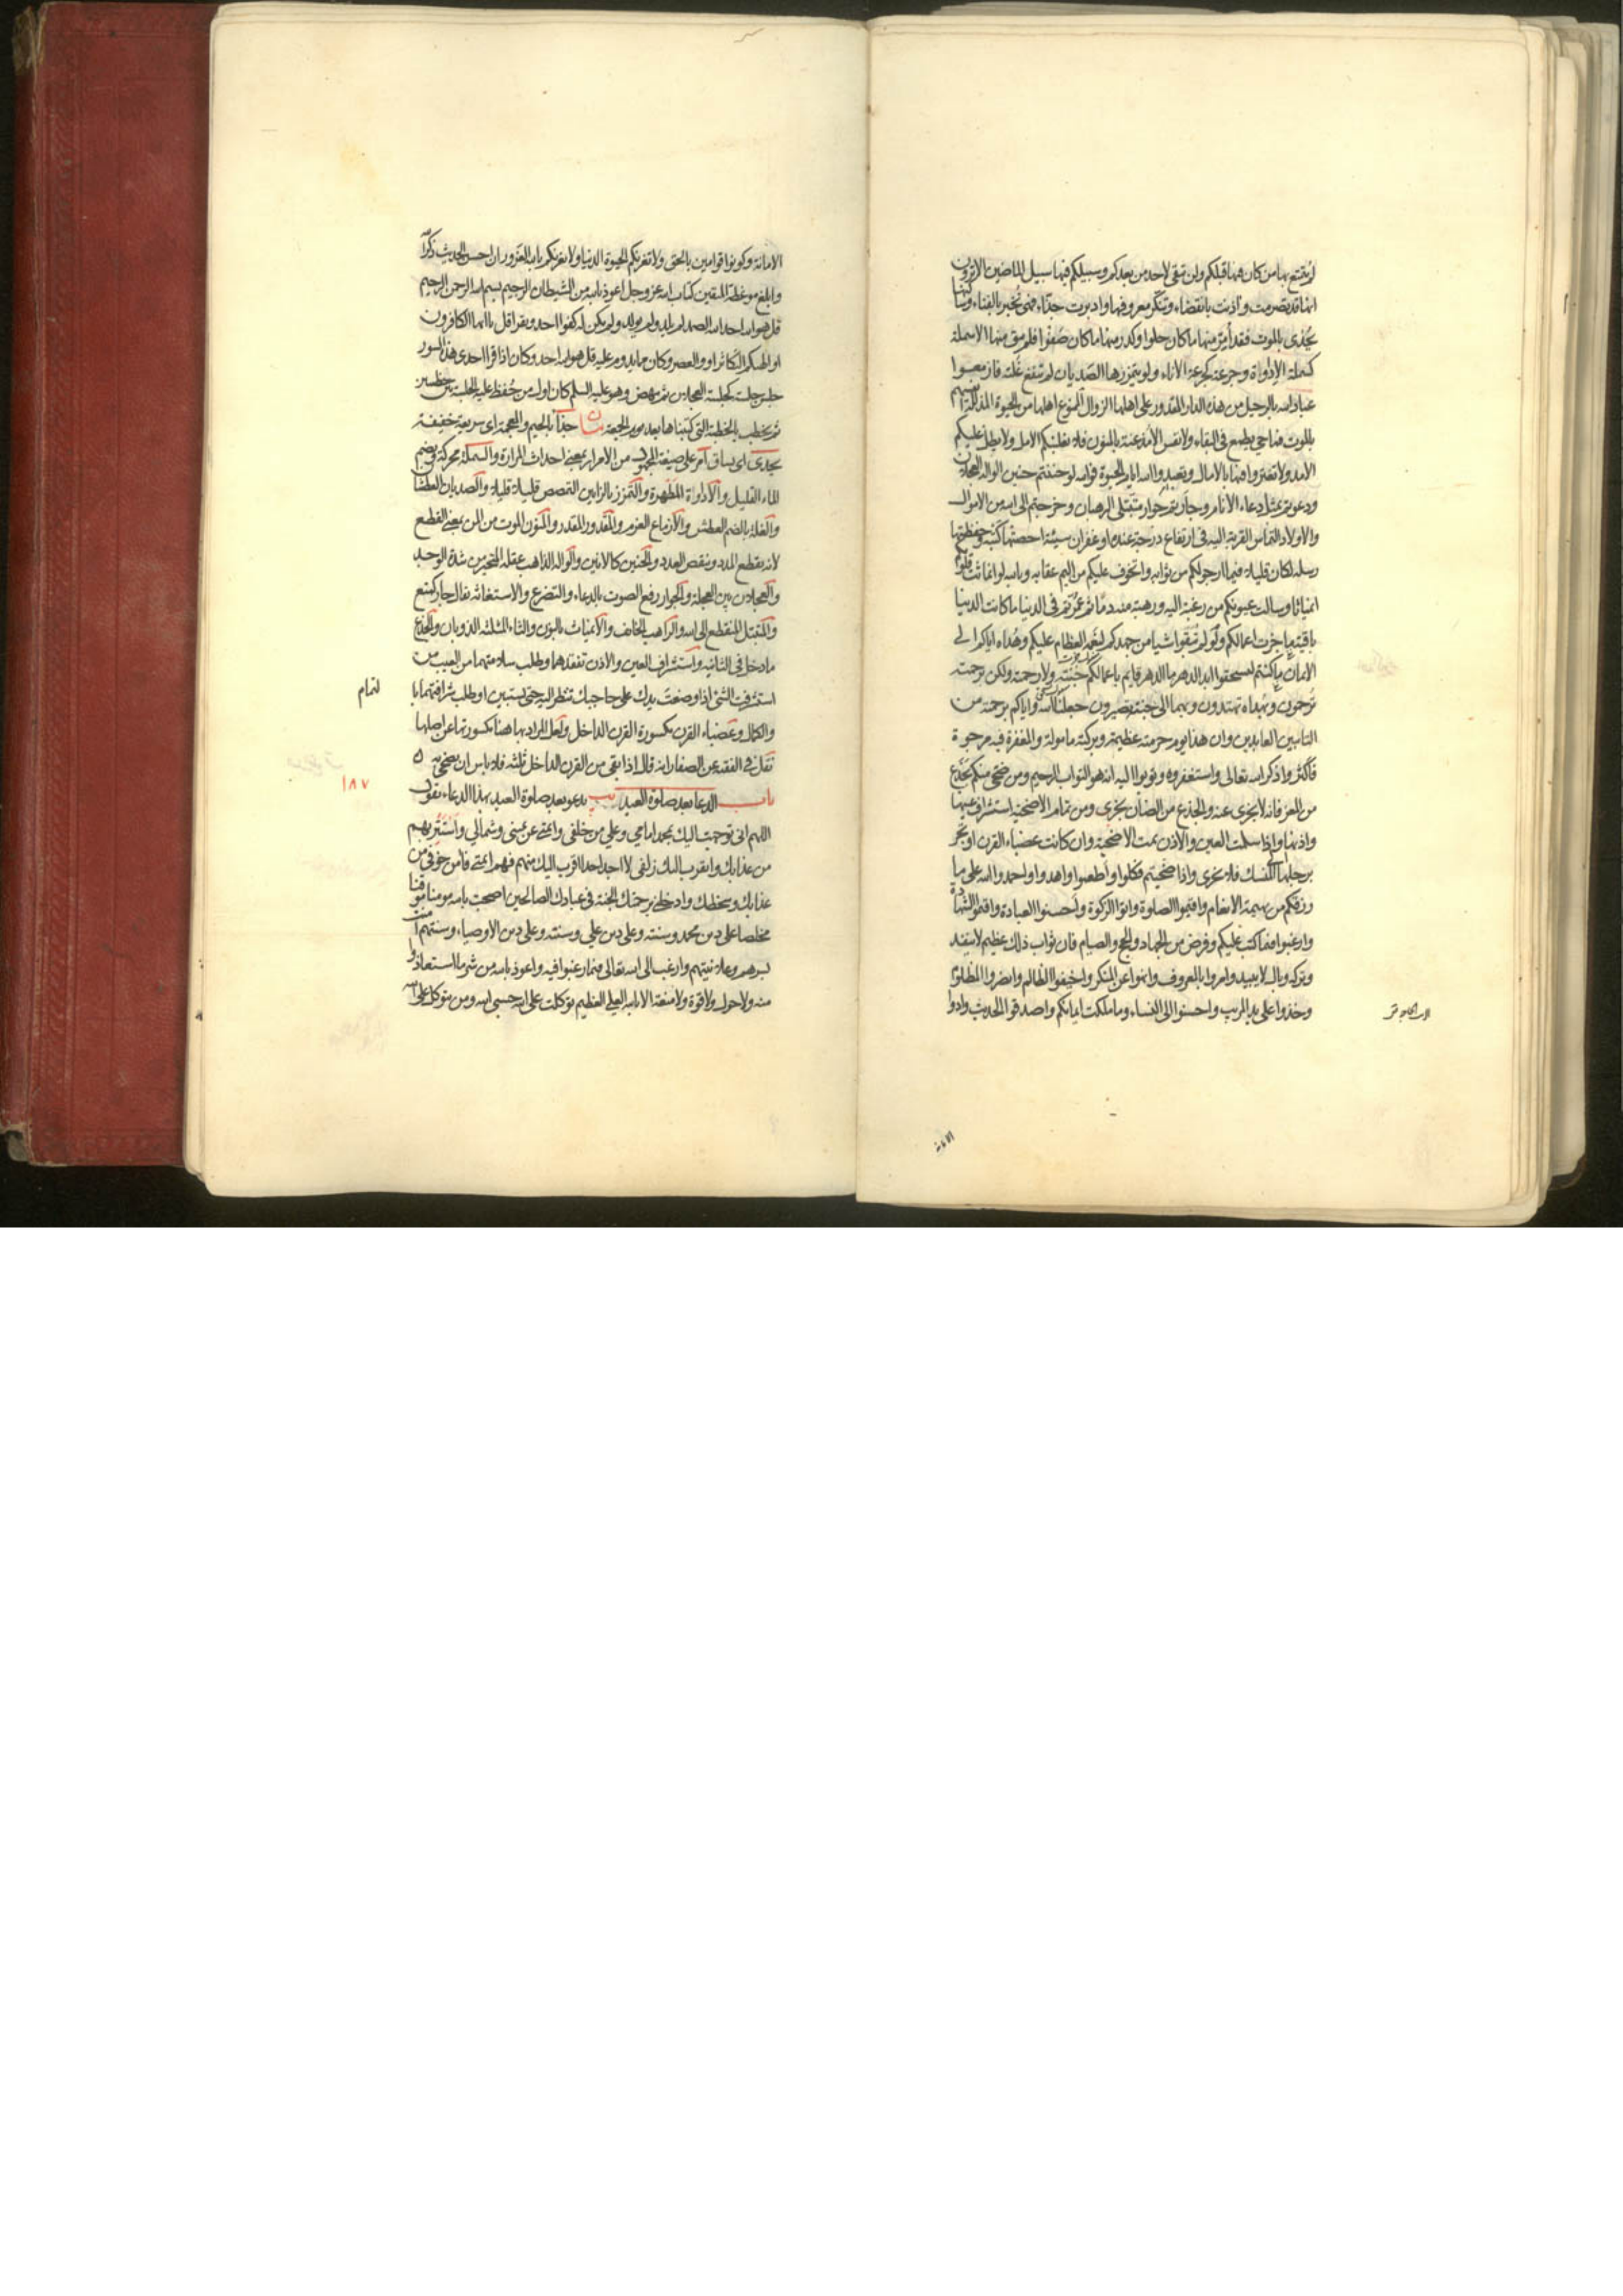 لم يمتع بها من كان فيها قبلكم ولن تبقى لاحد من بعدكم وسبيلكم فيها سبيل الماضين الا ترون
انها قد تصرمت واذنت بانقضاء وتنكر معروفها وادبرت حذاء فهى تخبر بالفناء وساكنها
يحدى بالموت فقد أمرّ منها ما كان حلوا وكدر منها ما كان صفوا فلم يبق منها الا سملة
كسملة الاداوة وجرعة كجرعة الاناء ولو يتمززها الصديان لم تنقع غلته فازمعوا
عباد الله بالرحيل من هذه الدار المقدور على اهلها الزوال الممنوع اهلها من الحيوة المذللة انفسهم
بالموت فما حي يطمع في البقاء ولا نفس الا مذعنة بالمنون فلا يغلبنكم الامل ولا يطل عليكم
الامد ولا تغتروا فيها بالامال وتعبدوا الله ايام الحيوة فوالله لو حننتم حنين الواله العجلان
ودعوتم بمثل دعاء الانام وجأرتم جوار متبتلى الرهبان وخرجتم الى الله من الاموال
والاولاد التماس القربة اليه في ارتفاع درجة عنده او غفران سيئة احصتها كتبته وحفظتها
رسله لكان قليلا فيما ارجو لكم من ثوابه واتخوف عليكم من اليم عقابه وبالله لو انماثت قلوبكم
انمياثا وسالت عيونكم من رغبة اليه ورهبة منه دما ثم عمرتم في الدنيا ما كانت الدنيا
باقية ما جزت اعمالكم ولو لم تبقوا شيا من جهدكم لنعمه العظام عليكم وهداه اياكم الى
الايمان ما كنتم لتستحقوا ابد الدهر ما الدهر قايم باعمالكم جنته ولا رحمته ولكن برحمته
ترحمون وبهداه تهتدون وبهما الى جنته تصيرون جعلنا الله واياكم برحمته من
التايبين العابدين وان هذا يوم حرمته عظيمة وبركته مامولة والمغفرة فيه مرجوة
فاكثروا ذكر الله تعالى واستغفروه وتوبوا اليه انه هو التواب الرحيم ومن ضحى منكم بجذع
من المعز فانه لا يجزى عنه والجذع من الضان يجزى ومن تمام الاضحية استشراف عينها
واذنها واذا سلمت العين والاذن تمت الاضحية وان كانت عضباء القرن او تجر
برجلها الى المنسك فلا تجزى واذا ضحيتم فكلوا واطعموا واهدوا واحمدوا الله على ما
رزقكم من بهيمة الانعام واقيموا الصلوة واتوا الزكوة واحسنوا العبادة واقيموا الشهادة
وارغبوا فيما كتب عليكم وفرض من الجهاد والحج والصيام فان ثواب ذلك عظيم لا ينفد
وتركه وبال لا يبيد وامروا بالمعروف وانهوا عن المنكر واخيفوا الظالم وانصروا المظلوم
وخذوا على يد المريب واحسنوا الى النساء وما ملكت ايمانكم واصدقوا الحديث وادوا
الامانة
الامانة وكونوا قوامين بالحق ولا تغرنكم الحيوة الدنيا ولا يغرنكم بالله الغرور ان احسن الحديث ذكر الله
وابلغ موعظة المتقين كتاب الله عز وجل اعوذ بالله من الشيطان الرجيم بسم الله الرحمن الرحيم
قل هو الله احد الله الصمد لم يلد ولم يولد ولم يكن له كفوا احد ويقرا قل يا ايها الكافرون
او الهيكم التكاثر او والعصر وكان ما يدوم عليه قل هو الله احد وكان اذا قرا احدى هذه السور
جلس جلسة كجلسة العجلان ثم نهض وهو عليه السلم كان اول من حفظ عليه الجلسة بين الخطبتين
ثم يخطب بالخطبة التي كتبناها بعد يوم الجمعة بيان حذاء بالجيم والمعجمة اى سريعة خفيفة
يحدى اى يساق امر على صيغة المجهول من الامرار بمعنى احداث المرارة والسملة محركة وبضم
الماء القليل والاداوة المطهرة والتمزز بالزايين التمصص قليلا قليلا والصديان العطشان
والغلة بالضم العطش والازماع العزم والمقدور المقدر والمنون الموت من المن بمعنى القطع
لانه يقطع المدد وينقص العدد والحنين كالانين والواله الذاهب عقله المتحير من شدة الوجد
والعجلان بين العجلة والجوار رفع الصوت بالدعاء والتضرع والاستغاثة يقال جار كمنع
والمتبتل المنقطع الى الله والراهب الخايف والانمياث بالنون والثاء المثلثة الذوبان والجذع
ما دخل في الثانية واستشراف العين والاذن تفقدهما وطلب سلامتهما من العيب من
استشرفت الشئ اذا وضعت يدك على حاجبك تنظر اليه حتى يستبين او طلب شرافتهما با
لتمام
والكمال وعضباء القرن مكسورة القرن الداخل ولعل المراد بها هنا مكسورتها عن اصلها
نقل في الفقيه عن الصفار انه قال اذا بقى من القرن الداخل ثلثه فلا باس ان يضحى به
١٨٧
باب الدعا بعد صلوة العيد يب يدعو بعد صلوة العيد بهذا الدعاء تقول
اللهم انى توجهت اليك بمحمد امامي وعلي من خلفي وائمتي عن يميني وشمالي واستتر بهم
من عذابك واتقرب اليك زلفى لا اجد احدا اقرب اليك منهم فهم ائمتي فامن خوفي من
عذابك وسخطك وادخلني برحمتك الجنة في عبادك الصالحين اصبحت بالله مومنا موقنا
مخلصا على دين محمد وسنته وعلى دين علي وسنته وعلى دين الاوصياء وسنتهم امنت
بسرهم وعلانيتهم وارغب الى الله تعالى فيما رغبوا فيه واعوذ بالله من شر ما استعاذوا
منه ولا حول ولا قوة ولا منعة الا بالله العلي العظيم توكلت على الله حسبي الله ومن يتوكل على الله